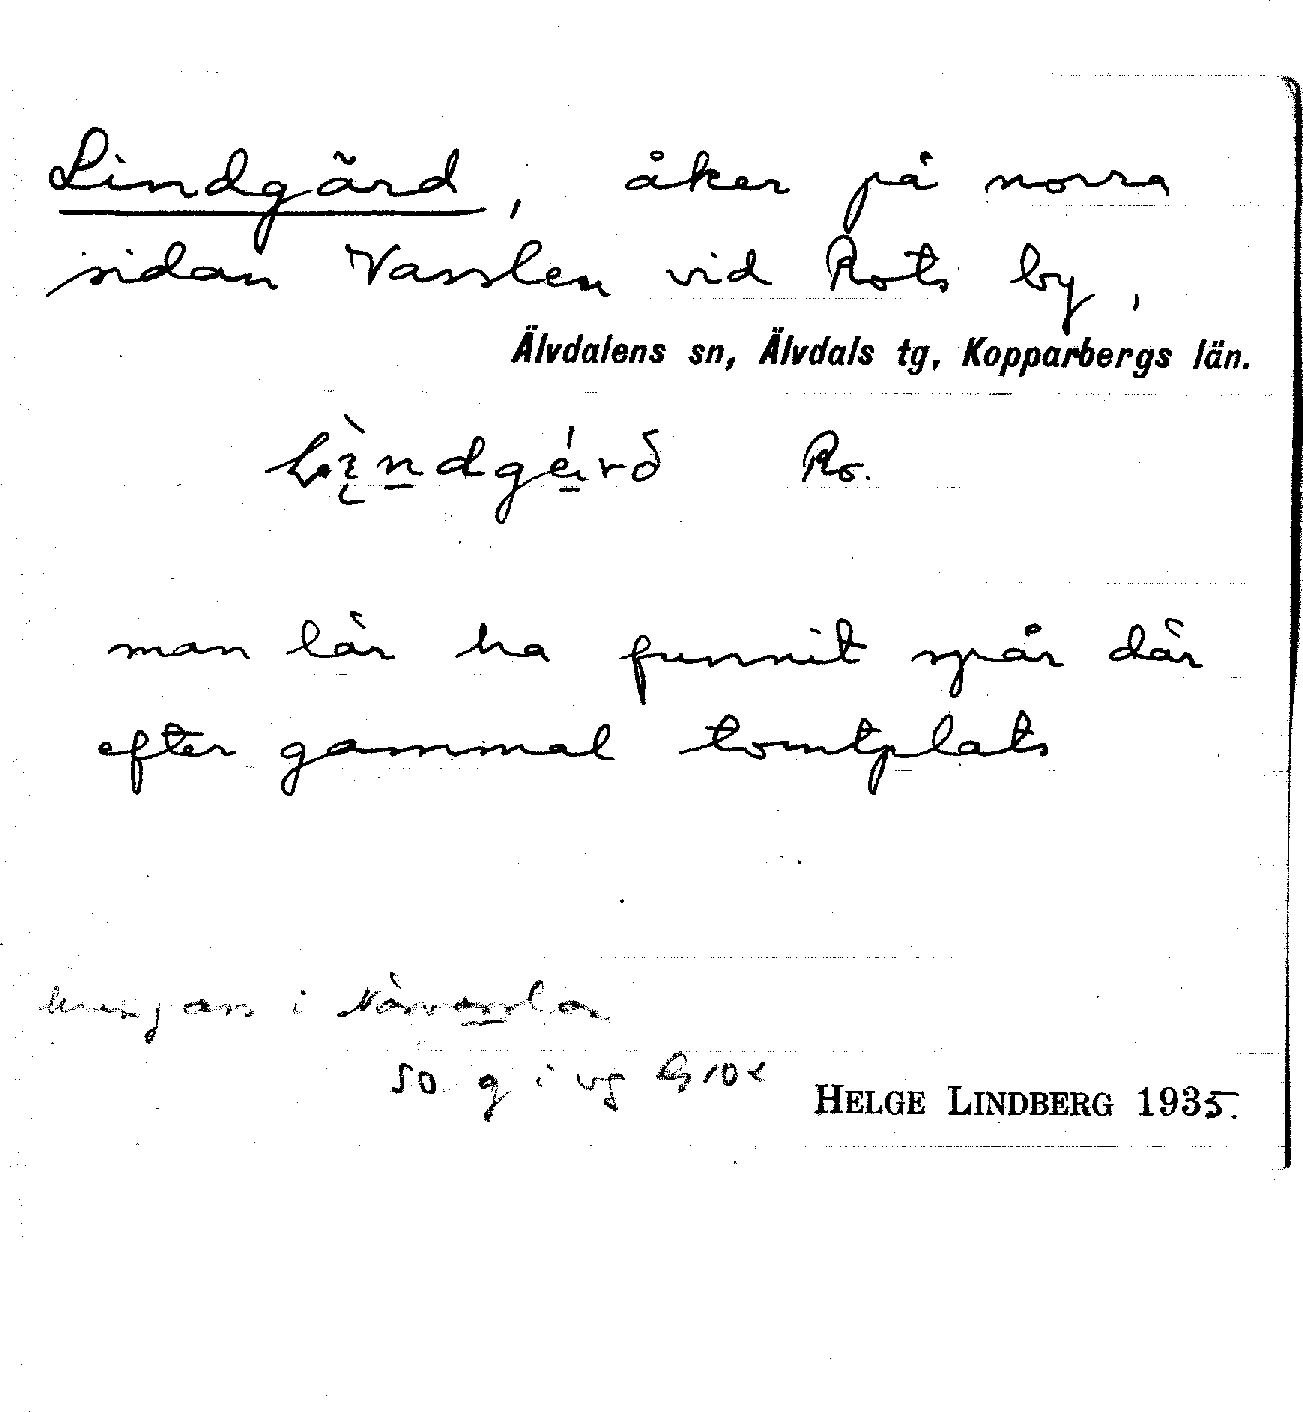 Lindgärd, åker på norra
sidan Vasslen vid Rots by,
Älvdalens sn, Älvdals tg, Kopparbergs län.
Ro.
man lär ha funnit spår där
efter gammal tomtplats
i
SO g i vg
HELGE LINDBERG 1935.